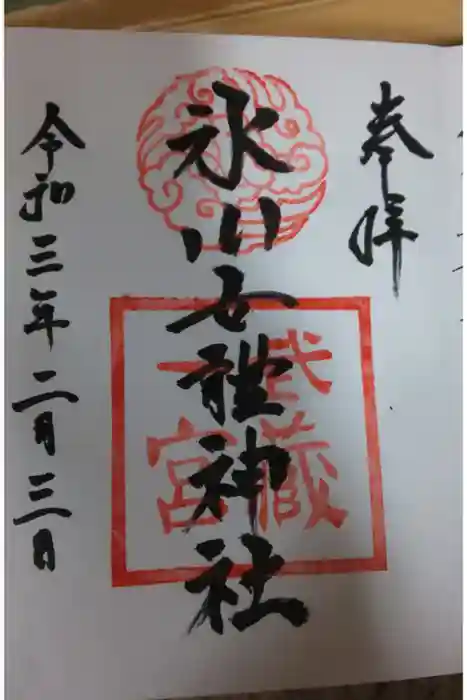 奉拝
氷川女體神社
武蔵
一宮
令和三年二月三日